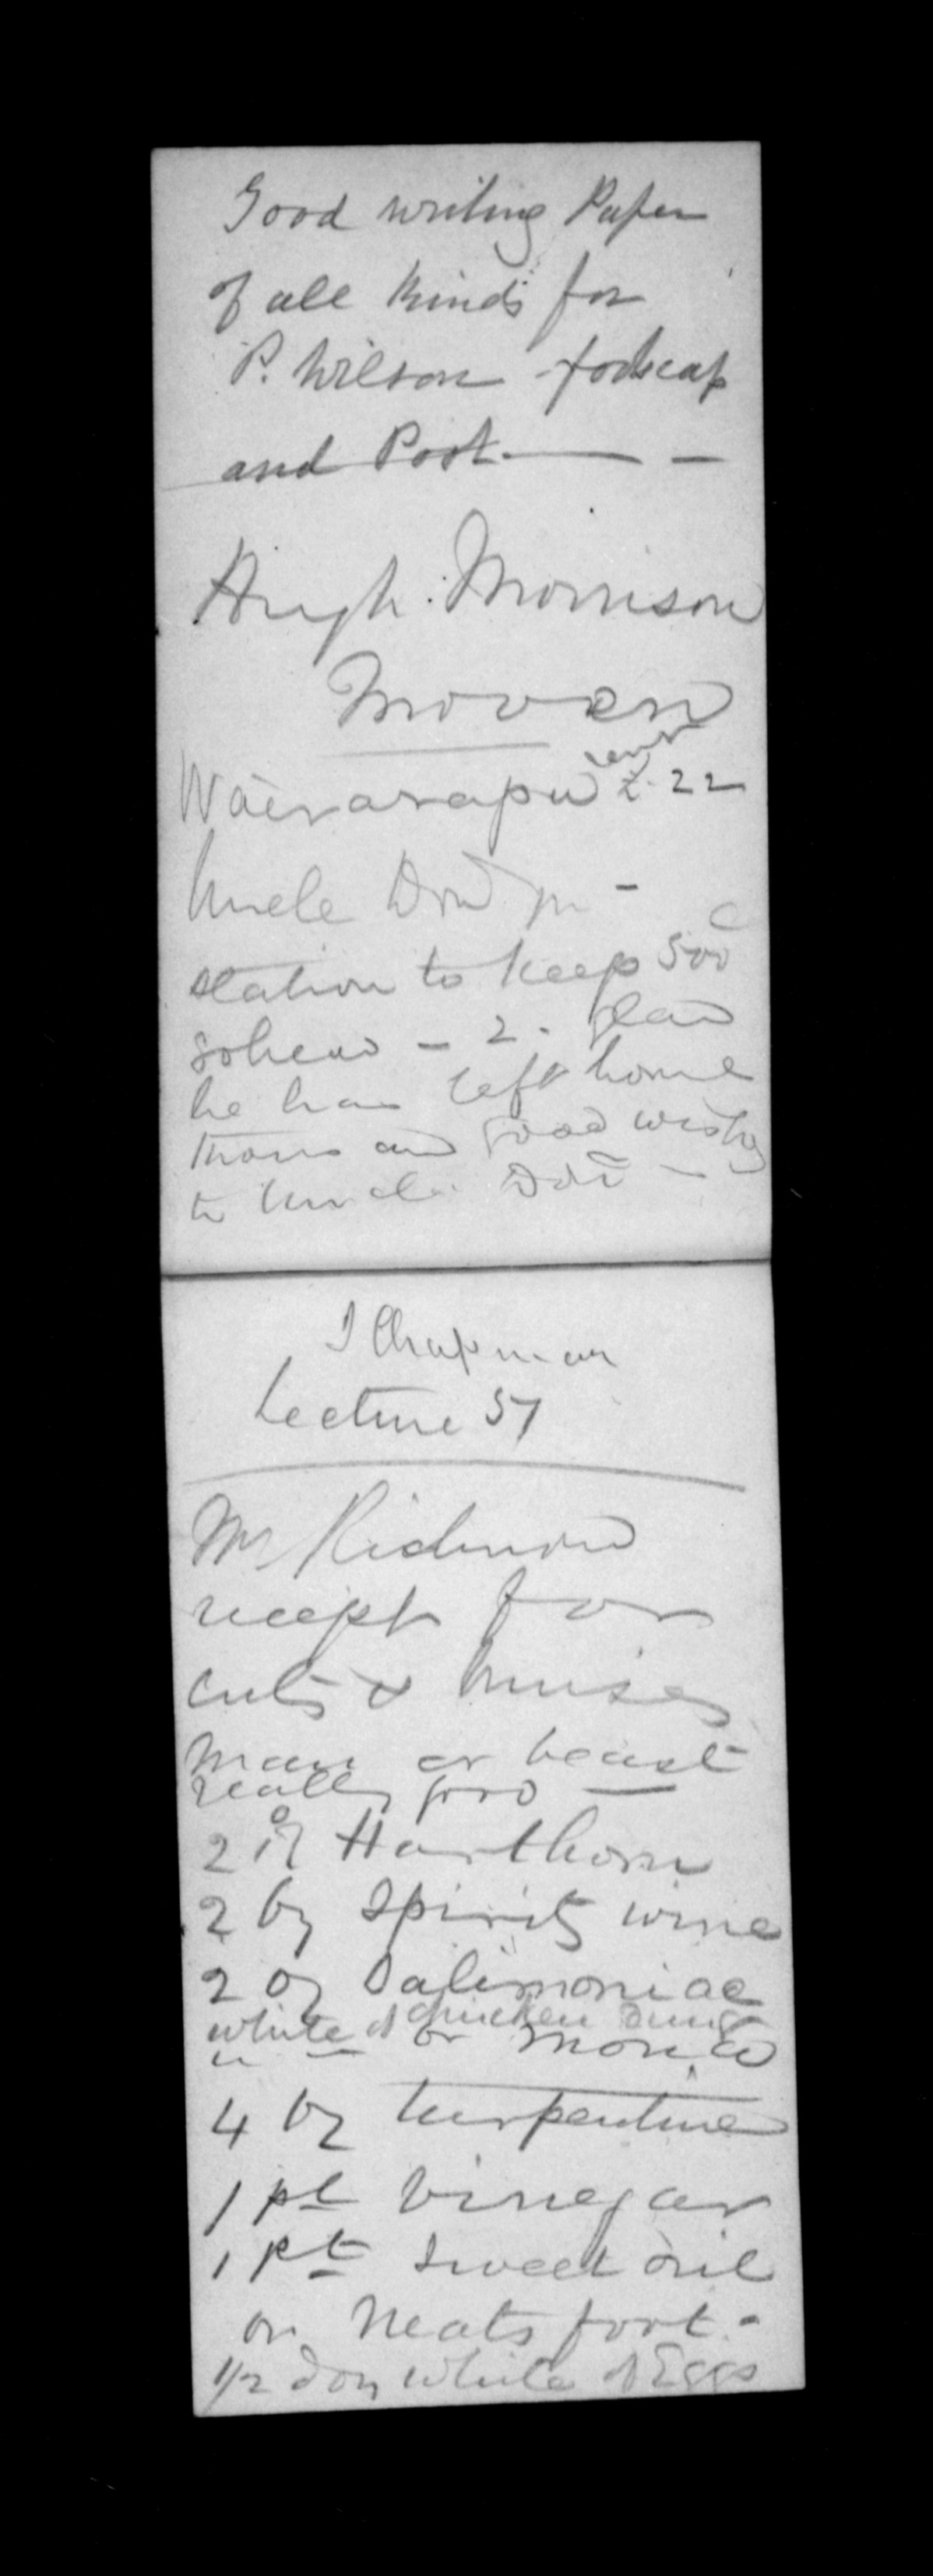 Good writing Paper
of all kinds for
P. Wilson foolscap
and Post — —
Hugh Morrison
Morven
Wairarapa 22
Uncle Don
station to keep 500
 — 2. glad
he has left home
 and good wishes
to Uncle Don —
J Chapman
Lecture 57
Mr Richmond
receipt for
cuts & bruises
man or beast
really good —
2 oz Hartshorn
2 oz Spirits wine
2 oz Salimoniac
white of chicken dung
" — or
4 oz turpentine
1 pt Vinegar
1 pt Sweet oil
or Neats foot -
1/2 doz white of Eggs